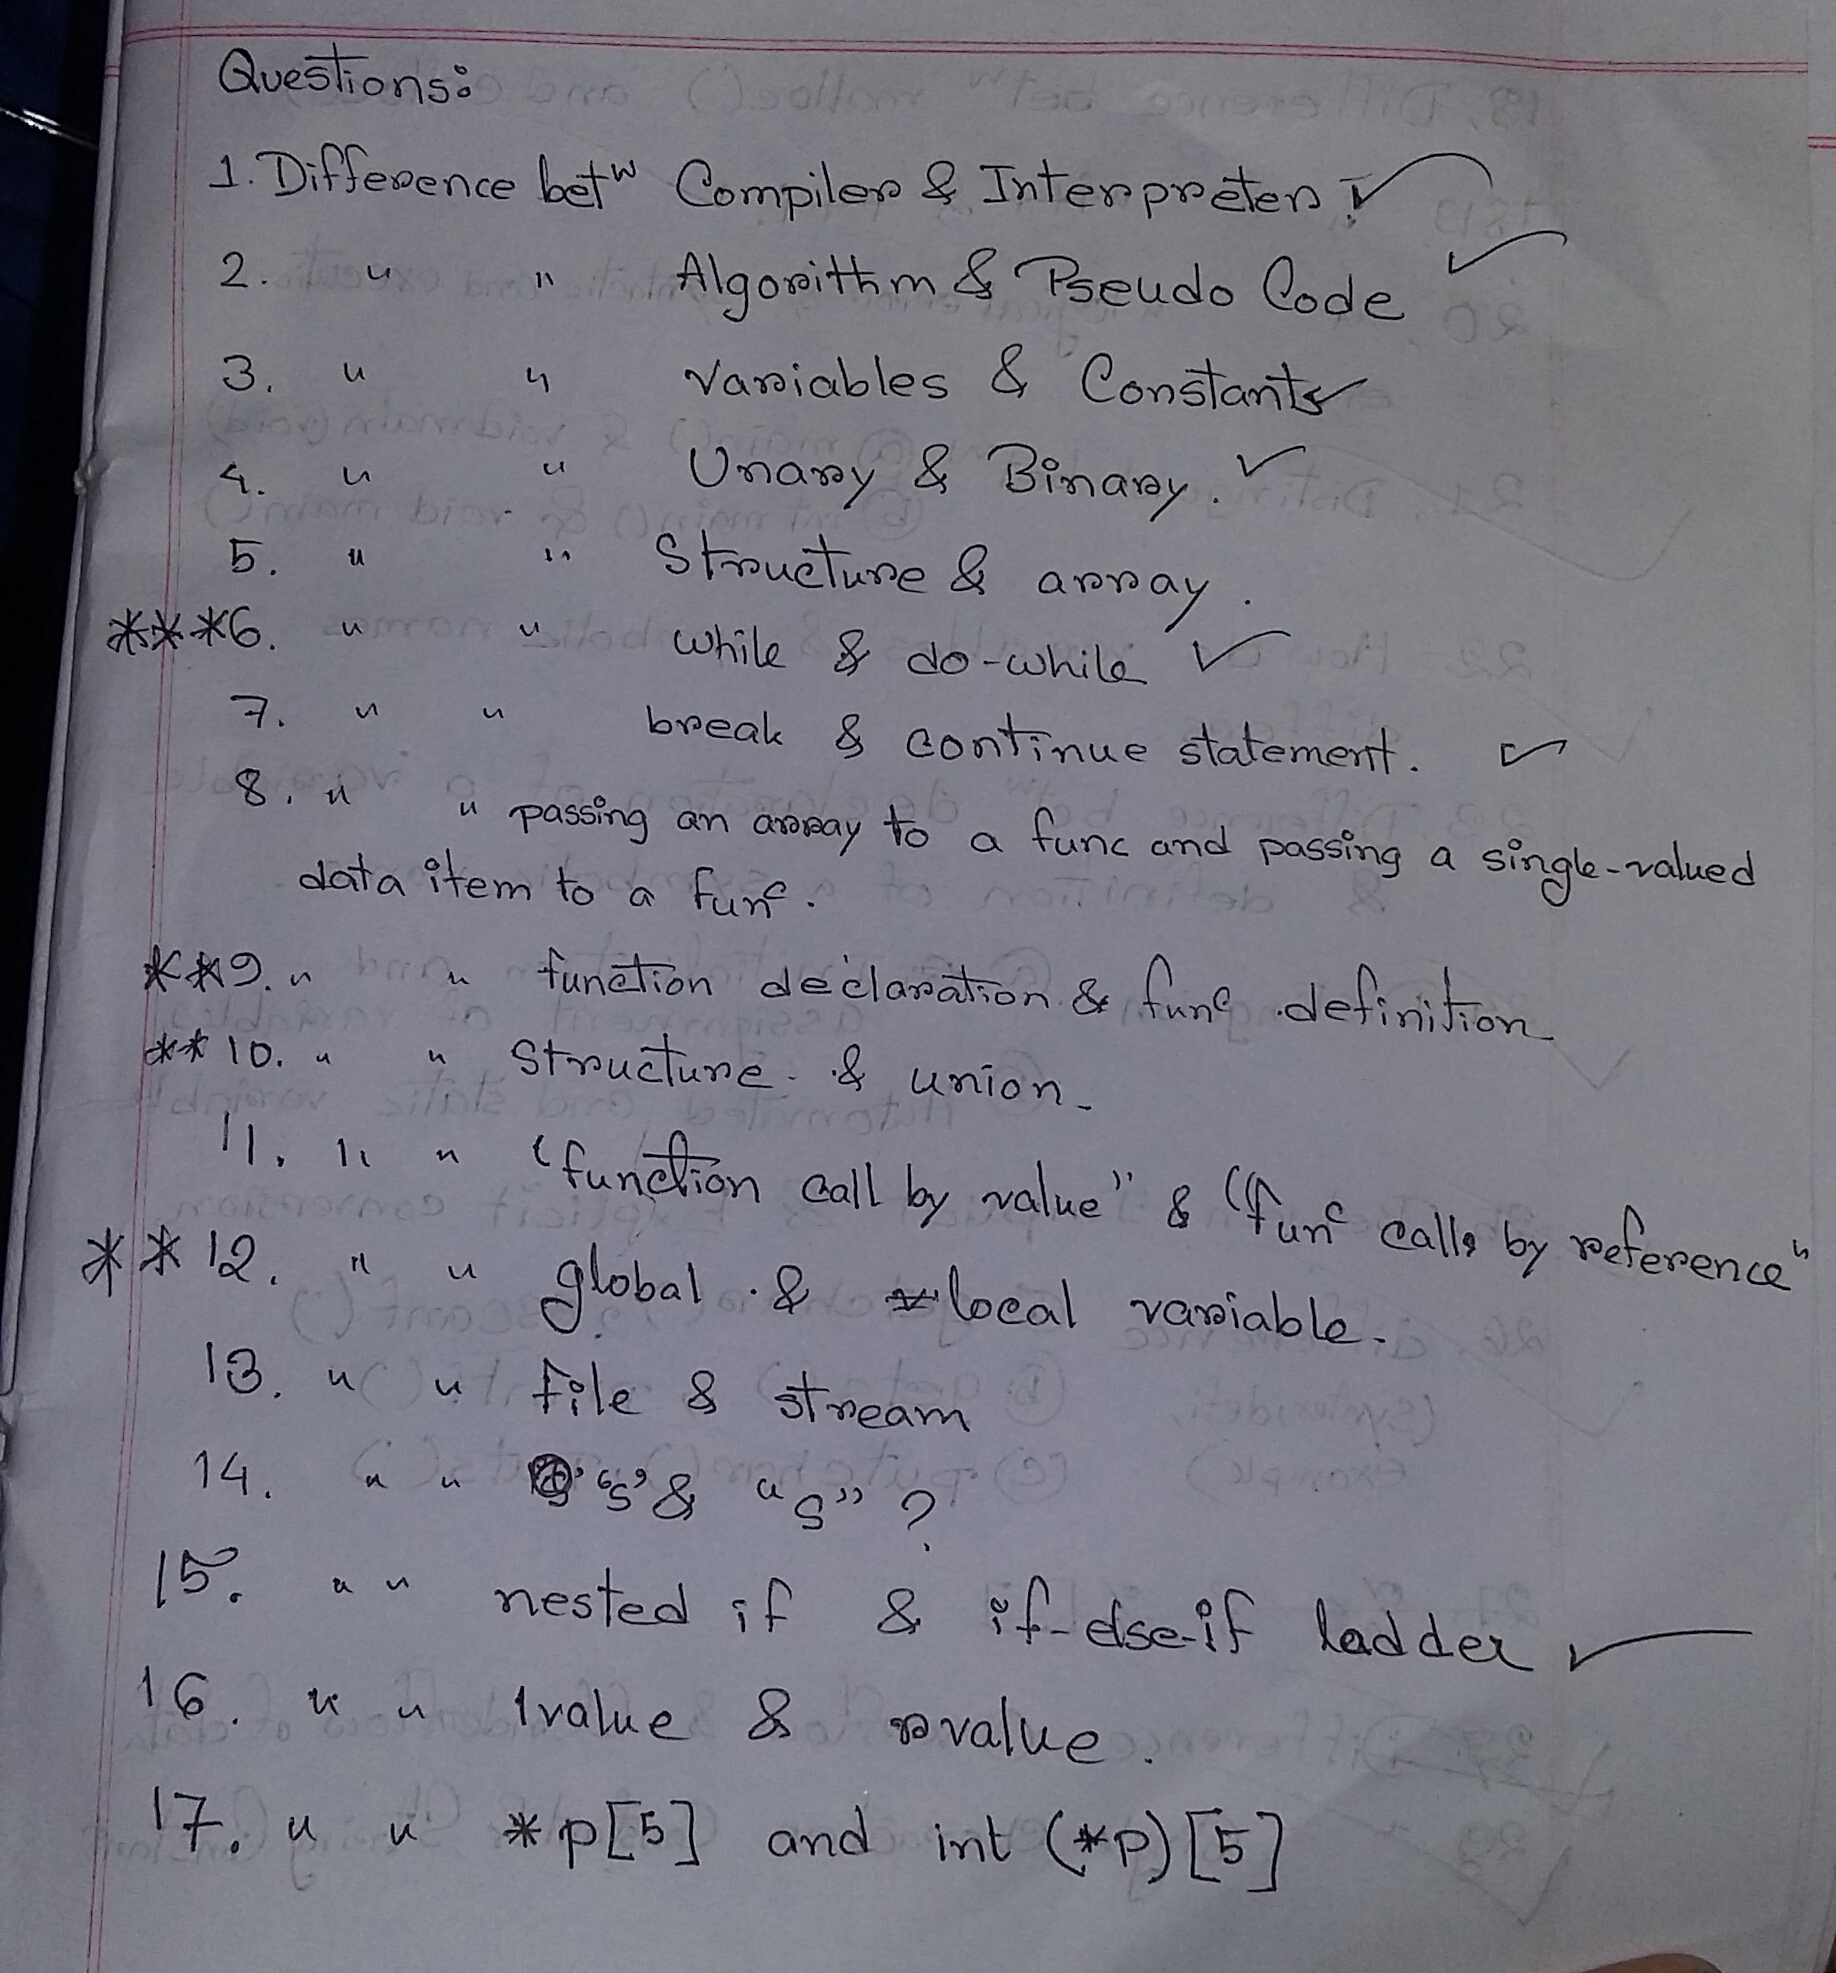 Questions:
1. Difference betw Compiler & Interpreter
2. " " Algorithm & Pseudo Code
3. " " Variables & Constants
4. " " Unary & Binary.
5. " " Structure & array.
***6. " " while & do-while
7. " " break & continue statement.
8. " " passing an array to a func and passing a single-valued
data item to a func.
**9. " " function declaration & func definition
**10. " " Structure & union.
11. " " "function call by value" & "func calls by reference"
**12. " " global & local variable.
13. " " File & stream
14. " " 's' & "s" ?
15. " " nested if & if-else-if ladder
16. " " lvalue & rvalue.
17. " " *p[5] and int (*p)[5]